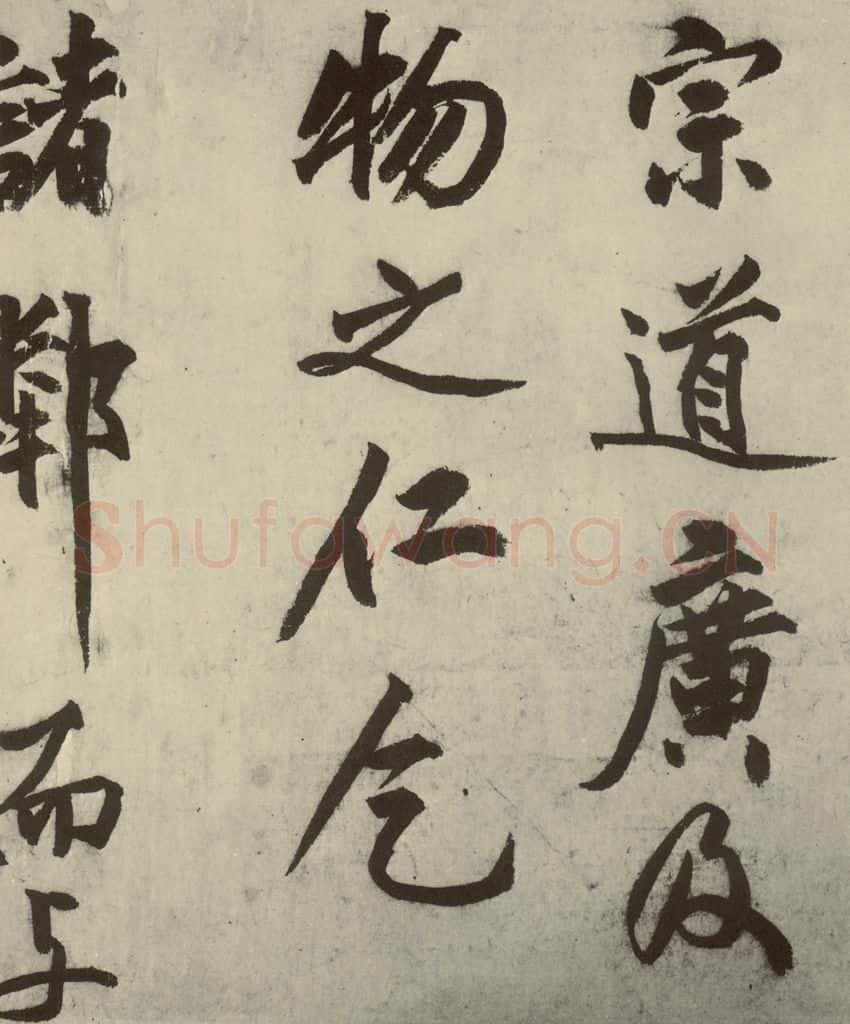 宗道廣及
物之仁乞
諸鄰而与
Shufawang.CN